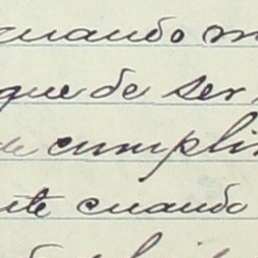 cuando m
que de ser
de cumpli
nte cuando